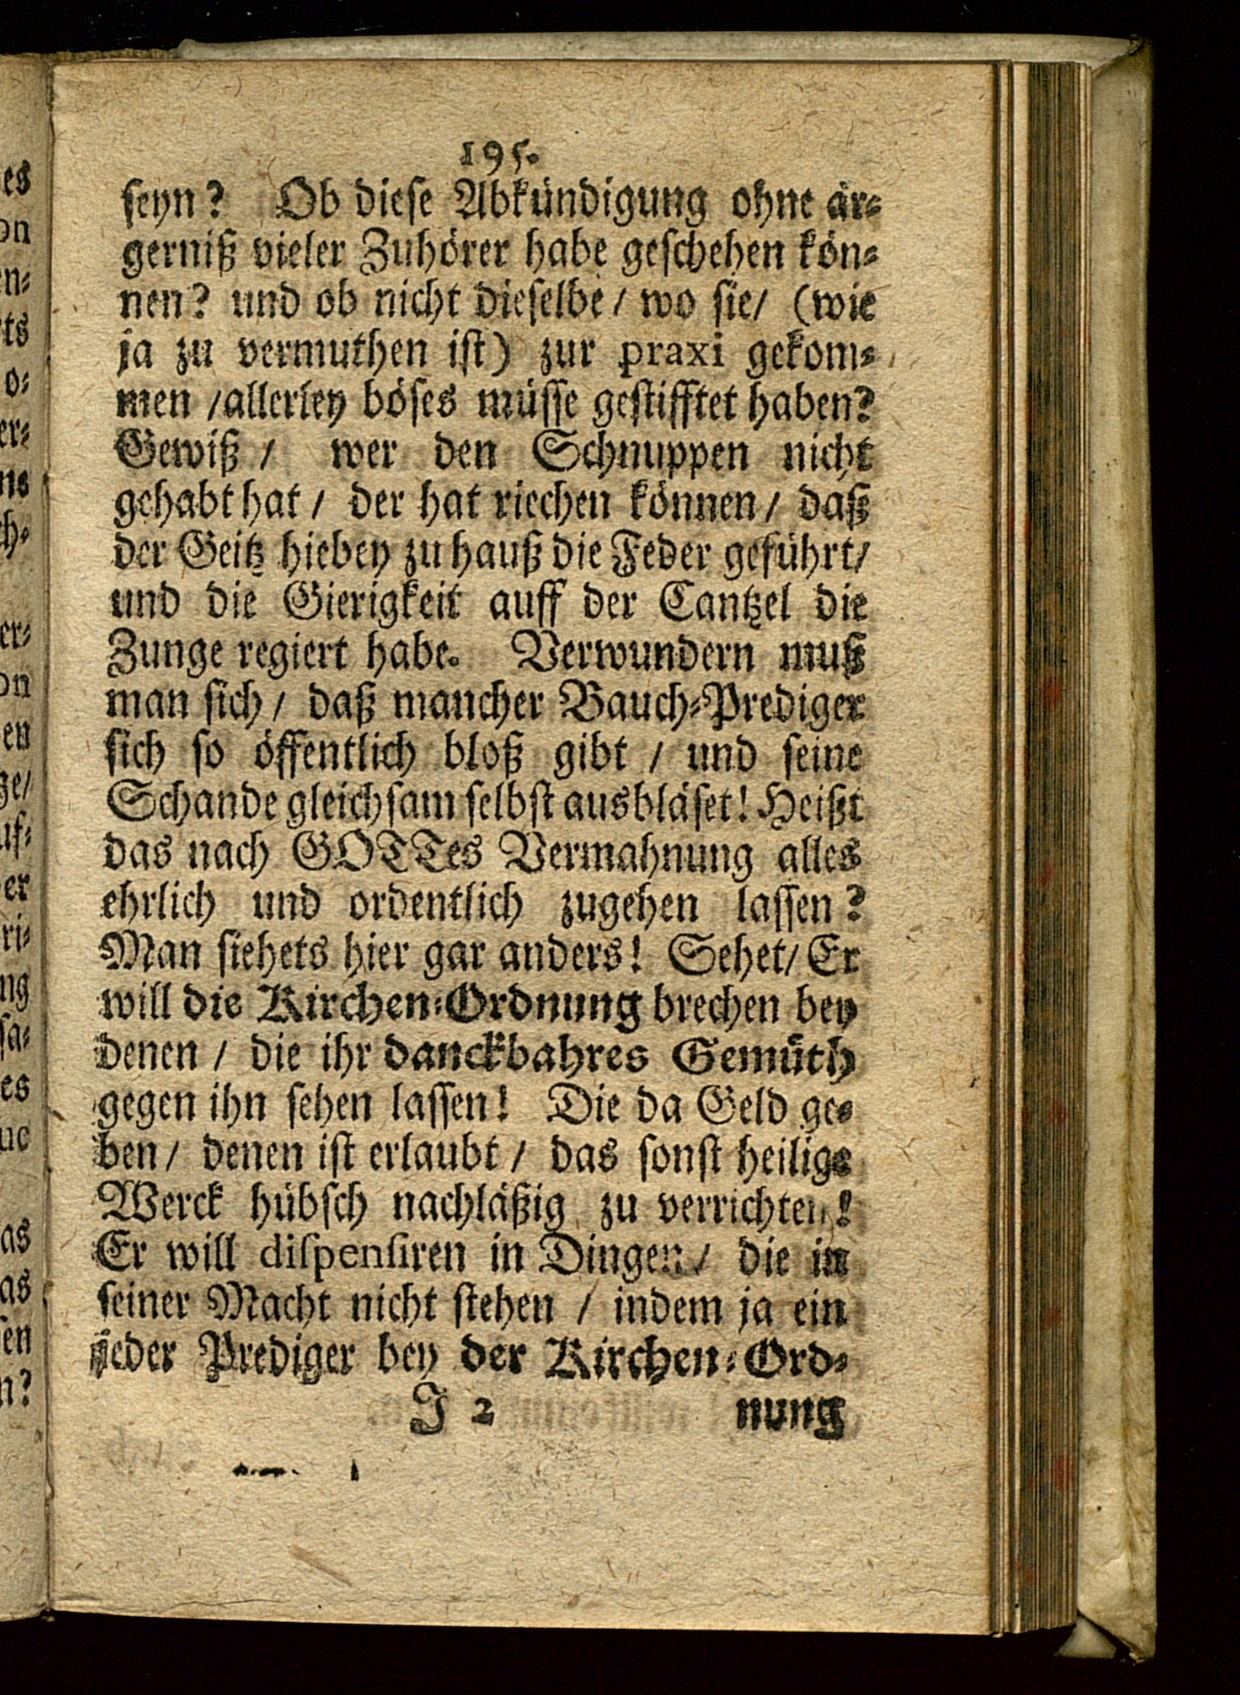 195.
seyn?  Ob diese Abkündigung ohne är-
gerniß vieler Zuhörer habe geschehen kön-
nen? und ob nicht dieselbe / wo sie / (wie
ja zu vermuthen ist) zur praxi gekom-
men / allerley böses müsse gestifftet haben?
Gewiß / wer den Schnuppen nicht
gehabt hat / der hat riechen können / daß
der Geitz hiebey zu hauß die Feder geführt /
und die Gierigkeit auff der Cantzel die
Zunge regiert habe. Verwundern muß
man sich / daß mancher Bauch-Prediger
sich so öffentlich bloß gibt / und seine
Schande gleichsam selbst ausbläset! Heißt
das nach GOTTes Vermahnung alles
ehrlich und ordentlich zugehen lassen?
Man siehets hier gar anders! Sehet / Er
will die Kirchen-Ordnung brechen bey
denen / die ihr danckbahres Gemüth
gegen ihn sehen lassen! Die da Geld ge-
ben / denen ist erlaubt / das sonst heilige
Werck hübsch nachläßig zu verrichten!
Er will dispensiren in Dingen / die in
seiner Macht nicht stehen / indem ja ein
jeder Prediger bey der Kirchen-Ord-
J 2 nung